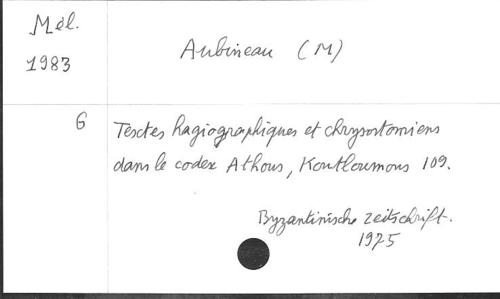 Mél.
1983
Aubineau (M)
6
Textes hagiographiques et chrysostomiens
dans le codex Athous, Koutloumous 109.
Byzantinische Zeitschrift.
1975